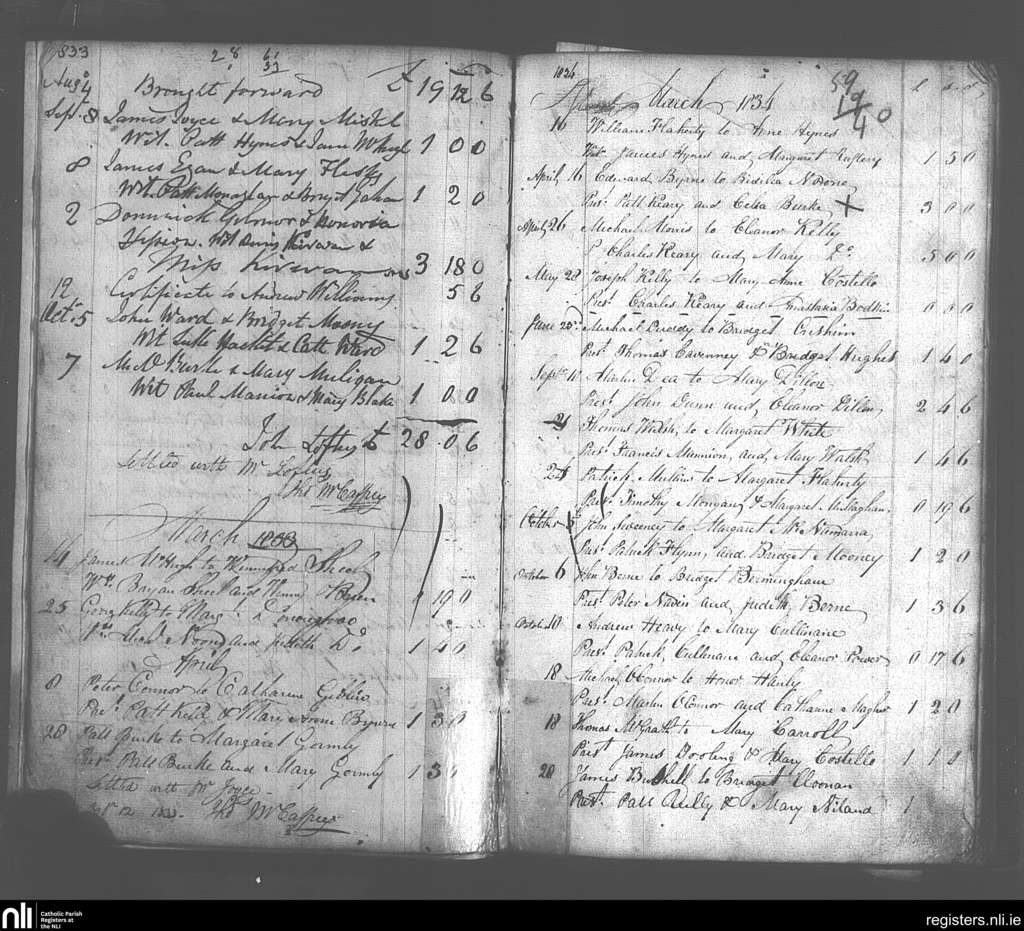 1833
28 61
33
Augt 4 Brought forward £ 19 12 6
Sept. 8 James Joyce & Mary Miskel
Wit. Patt Hynes & Jane McHugh 1 0 0
8 James Egan & Mary
Wit. Patt Monaghan & Bridgt 1 2 0
2 Dominick & Honoria
Wit Kirwan &
Miss Kirwan 3 18 0
12 Certificate to Andrew Williams 5 6
Oct. 5 John Ward & Bridget Moony
Wit Luke & Cath Ward 1 2 6
7 Burke & Mary Muligan
Wit Paul Manion & Mary Blake 1 0 0
Joh Loftus £ 28 0 6
Settled with Mr Loftus
Tho McCaffrey
March 1833
14 James McHugh to Winnifred Sheel
Wt. Bryan Sheel and 19 0
25 Georg Kelly to Margt
and Judith Do 1 4 0
April
8 Peter Connor to Catharine
Prest Patt & Mary Anne Byrne 1 3 0
28 Patt Burke to Margaret Gormly
Prest Patt Burke and Mary Gormly 1 3
Settled with Mr Joyce
12 Tho McCaffrey
1834
March 1834 59 19 4 0
£ s d
16 William Flaherty to Anne Hynes
Wit. James Hynes and Margaret 1 5 0
April 16 Edward Byrne to Bidilia Noone
Prst Patt Keary and Celia Burke X 3 0 0
April 26 Michael Morris to Eleanor Kelly
P Charles Keary and Mary Do 5 0 0
May 28 Joseph Kelly to Mary Anne Costello
Prest Charles Keary and Anastasia Bodkin 0 0 0
June 25 Michael to Bridget Cushin
Prst Thomas Cavenney & Bridget Hughes 1 4 0
Septr 10 Martin Dea to Mary Dillon
Prest John Dunn and Eleanor Dillon 2 4 6
21 Thomas Walsh to Margaret White
Prest Francis Mannion and Mary Walsh 1 4 6
24 Patrick Mullins to Margaret Flaherty
Prest Timothy Mongan & Margaret 0 19 6
October 5 John Sweeney to Margaret McNamara
Prst Patrick Flynn and Bridget Mooney 1 2 0
October 6 John Berne to Bridget Bermingham
Prest Peter Navin and Judith Berne 1 3 6
Octobr 10 Andrew Heavy to Mary Cullinane
Prest Patrick Cullinane and Eleanor Power 0 17 6
18 Michael O'Connor to Honor Hanly
Prest Martin O'Connor and Catharine Magher 1 2 0
18 Thomas McGrath to Mary Carroll
Prest James Dooling & Mary Costello 1 1 0
28 James to Bridget Noonan
Prest Patt Reilly & Mary Niland 1
nli
Catholic Parish
Registers at
the NLI
registers.nli.ie